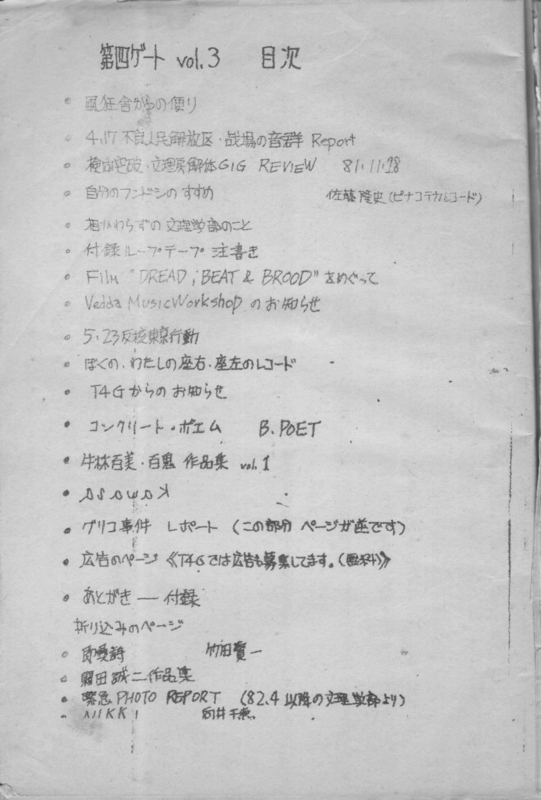 第四ゲート vol.3 目次
・ 風狂舎からの便り
・ 4.17 不良人民解放区・戦場の音群 Report
・ 検問突破・文理房解体GIG REVIEW 81.11.28
・ 自分のフンドシのすすめ 佐藤隆史(ピナコテカレコード)
・ 相かわらずの文理学部のこと
・ 付録ループテープ 注書き
・ Film "DREAD, BEAT & BROOD" をめぐって
・ Vedda MusicWorkshop のお知らせ
・ 5・23反核東京行動
・ ぼくの、わたしの座右・座左のレコード
・ T4Gからのお知らせ
・ コンクリート・ポエム B.POET
・ 牛林百美・百鬼 作品集 vol.1
・ グリコ事件 レポート (この部分 ページが逆です)
・ 広告のページ 《T4Gでは広告も募集してます。(無料)》
・ あとがき ― 付録
折り込みのページ
・ 竹田賢一
・ 誠二作品集
・ 緊急 PHOTO REPORT (82.4 以降の文理学部より)
・ NIKKI 向井千恵